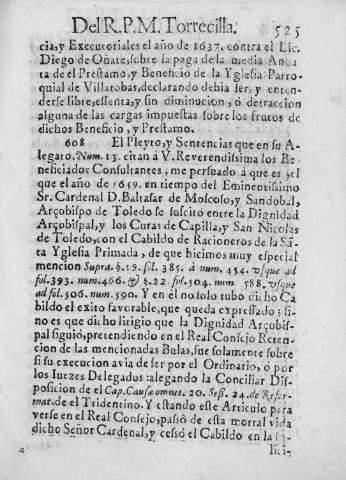 Del R. P. M. Torrecilla. 525
cia, y Executoriales el año de 1637. contra el Lic.
Diego de Oñate, sobre la paga de la media Anna
ta de el Prestamo, y Beneficio de la Yglesia Parro
quial de Villatobas, declarando debia ser, y enten-
derse libre, essenta, y sin diminucion, ó detraccion
alguna de las cargas impuestas sobre los frutos de
dichos Beneficio, y Prestamo.
608 El Pleyto, y Sentencias que en su A-
legato. Num. 13. citan á V. Reverendissima los Be
neficiados Consultantes, me persuado à que es el
que el año de 1659. en tiempo del Eminentissimo
Sr. Cardenal D. Baltasar de Moscoso, y Sandobal,
Arçobispo de Toledo se suscitó entre la Dignidad
Arçobispal, y los Curas de Capilla, y San Nicolas
de Toledo, con el Cabildo de Racioneros de la Sã
ta Yglesia Primada, de que hicimos muy especial
mencion Supra. §. 19. fol. 385. à num. 454. vsque ad
fol. 393. num. 466. & §. 22. fol. 504. num. 588. vsque
ad fol. 506. num. 590. Y en él no solo tubo dicho Ca
bildo el exito favorable, que queda expressado; si-
no es que dicho litigio que la Dignidad Arçobis-
pal siguió, pretendiendo en el Real Consejo Reten-
cion de las mencionadas Bulas, fue solamente sobre
si su execucion avia de ser por el Ordinario, ó por
los Iuezes Delegados: alegando la Conciliar Dis-
posicion de el Cap. Causæ omnes. 20. Seß. 24. de Refor-
mat. de el Tridentino. Y estando este Articulo para
verse en el Real Consejo, passó de esta mortal vida
dicho Señor Cardenal, y cessó el Cabildo en la so-
lici-